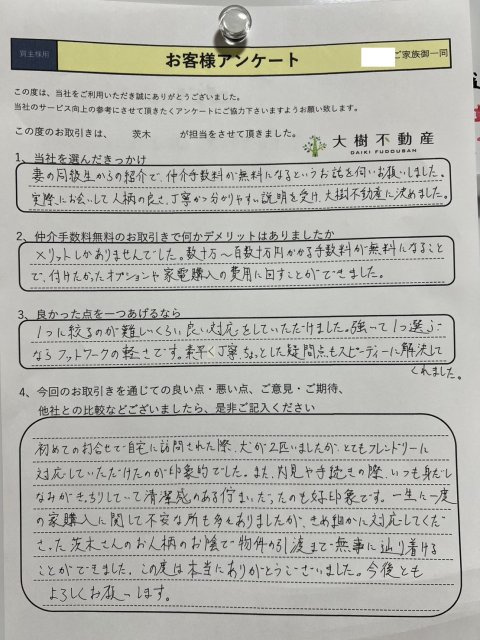 買主様用
お客様アンケート
ご家族御一同
この度は、当社をご利用いただき誠にありがとうございました。
当社のサービス向上の参考にさせて頂きたくアンケートにご協力下さいますようお願い致します。
この度のお取引きは、 茨木 が担当をさせて頂きました。
大樹不動産
DAIKI FUDOUSAN
1、当社を選んだきっかけ
妻の同級生からの紹介で、仲介手数料が無料になるというお話を伺いお願いしました。
実際にお会いして人柄の良さ、丁寧かつ分かりやすい説明を受け、大樹不動産に決めました。
2、仲介手数料無料のお取引きで何かデメリットはありましたか
メリットしかありませんでした。数十万〜百数十万円かかる手数料が無料になること
で、付けたかったオプションや家電購入の費用に回すことができました。
3、良かった点を一つあげるなら
1つに絞るのが難しいくらい良い対応をしていただけました。強いて1つ選ぶ
ならフットワークの軽さです。素早く丁寧、ちょっとした疑問点もスピーディーに解決して
くれました。
4、今回のお取引を通じての良い点・悪い点、ご意見・ご期待、
他社との比較などございましたら、是非ご記入ください
初めての打合せで自宅に訪問された際、犬が2匹いましたが、とてもフレンドリーに
対応していただけたのが印象的でした。また、内見や手続きの際、いつも身だし
なみがきっちりしていて清潔感のある佇まいだったのも好印象です。一生に一度
の家購入に関して不安な所も多々ありましたが、きめ細かに対応してくだ
さった茨木さんのお人柄のお陰で物件の引渡まで無事に辿り着ける
ことができました。この度は本当にありがとうございました。今後とも
よろしくお願いします。